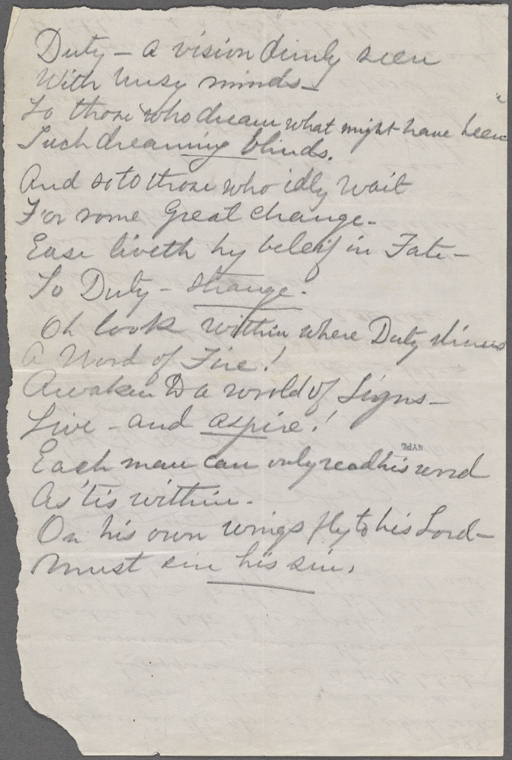 Duty – a vision dimly seen
With busy minds –
To those who dream what might have been
Such dreaming blinds.
And so to those who idly wait
For some Great change –
Ease liveth by beleif in Fate –
To Duty – strange.
Oh look within where Duty shines
A Word of Fire!
Awaken to a world of Signs –
Live – and aspire!
NYPL
Each man can only read his word
As 'tis within.
On his own wings fly to his Lord –
Must sin his sin.